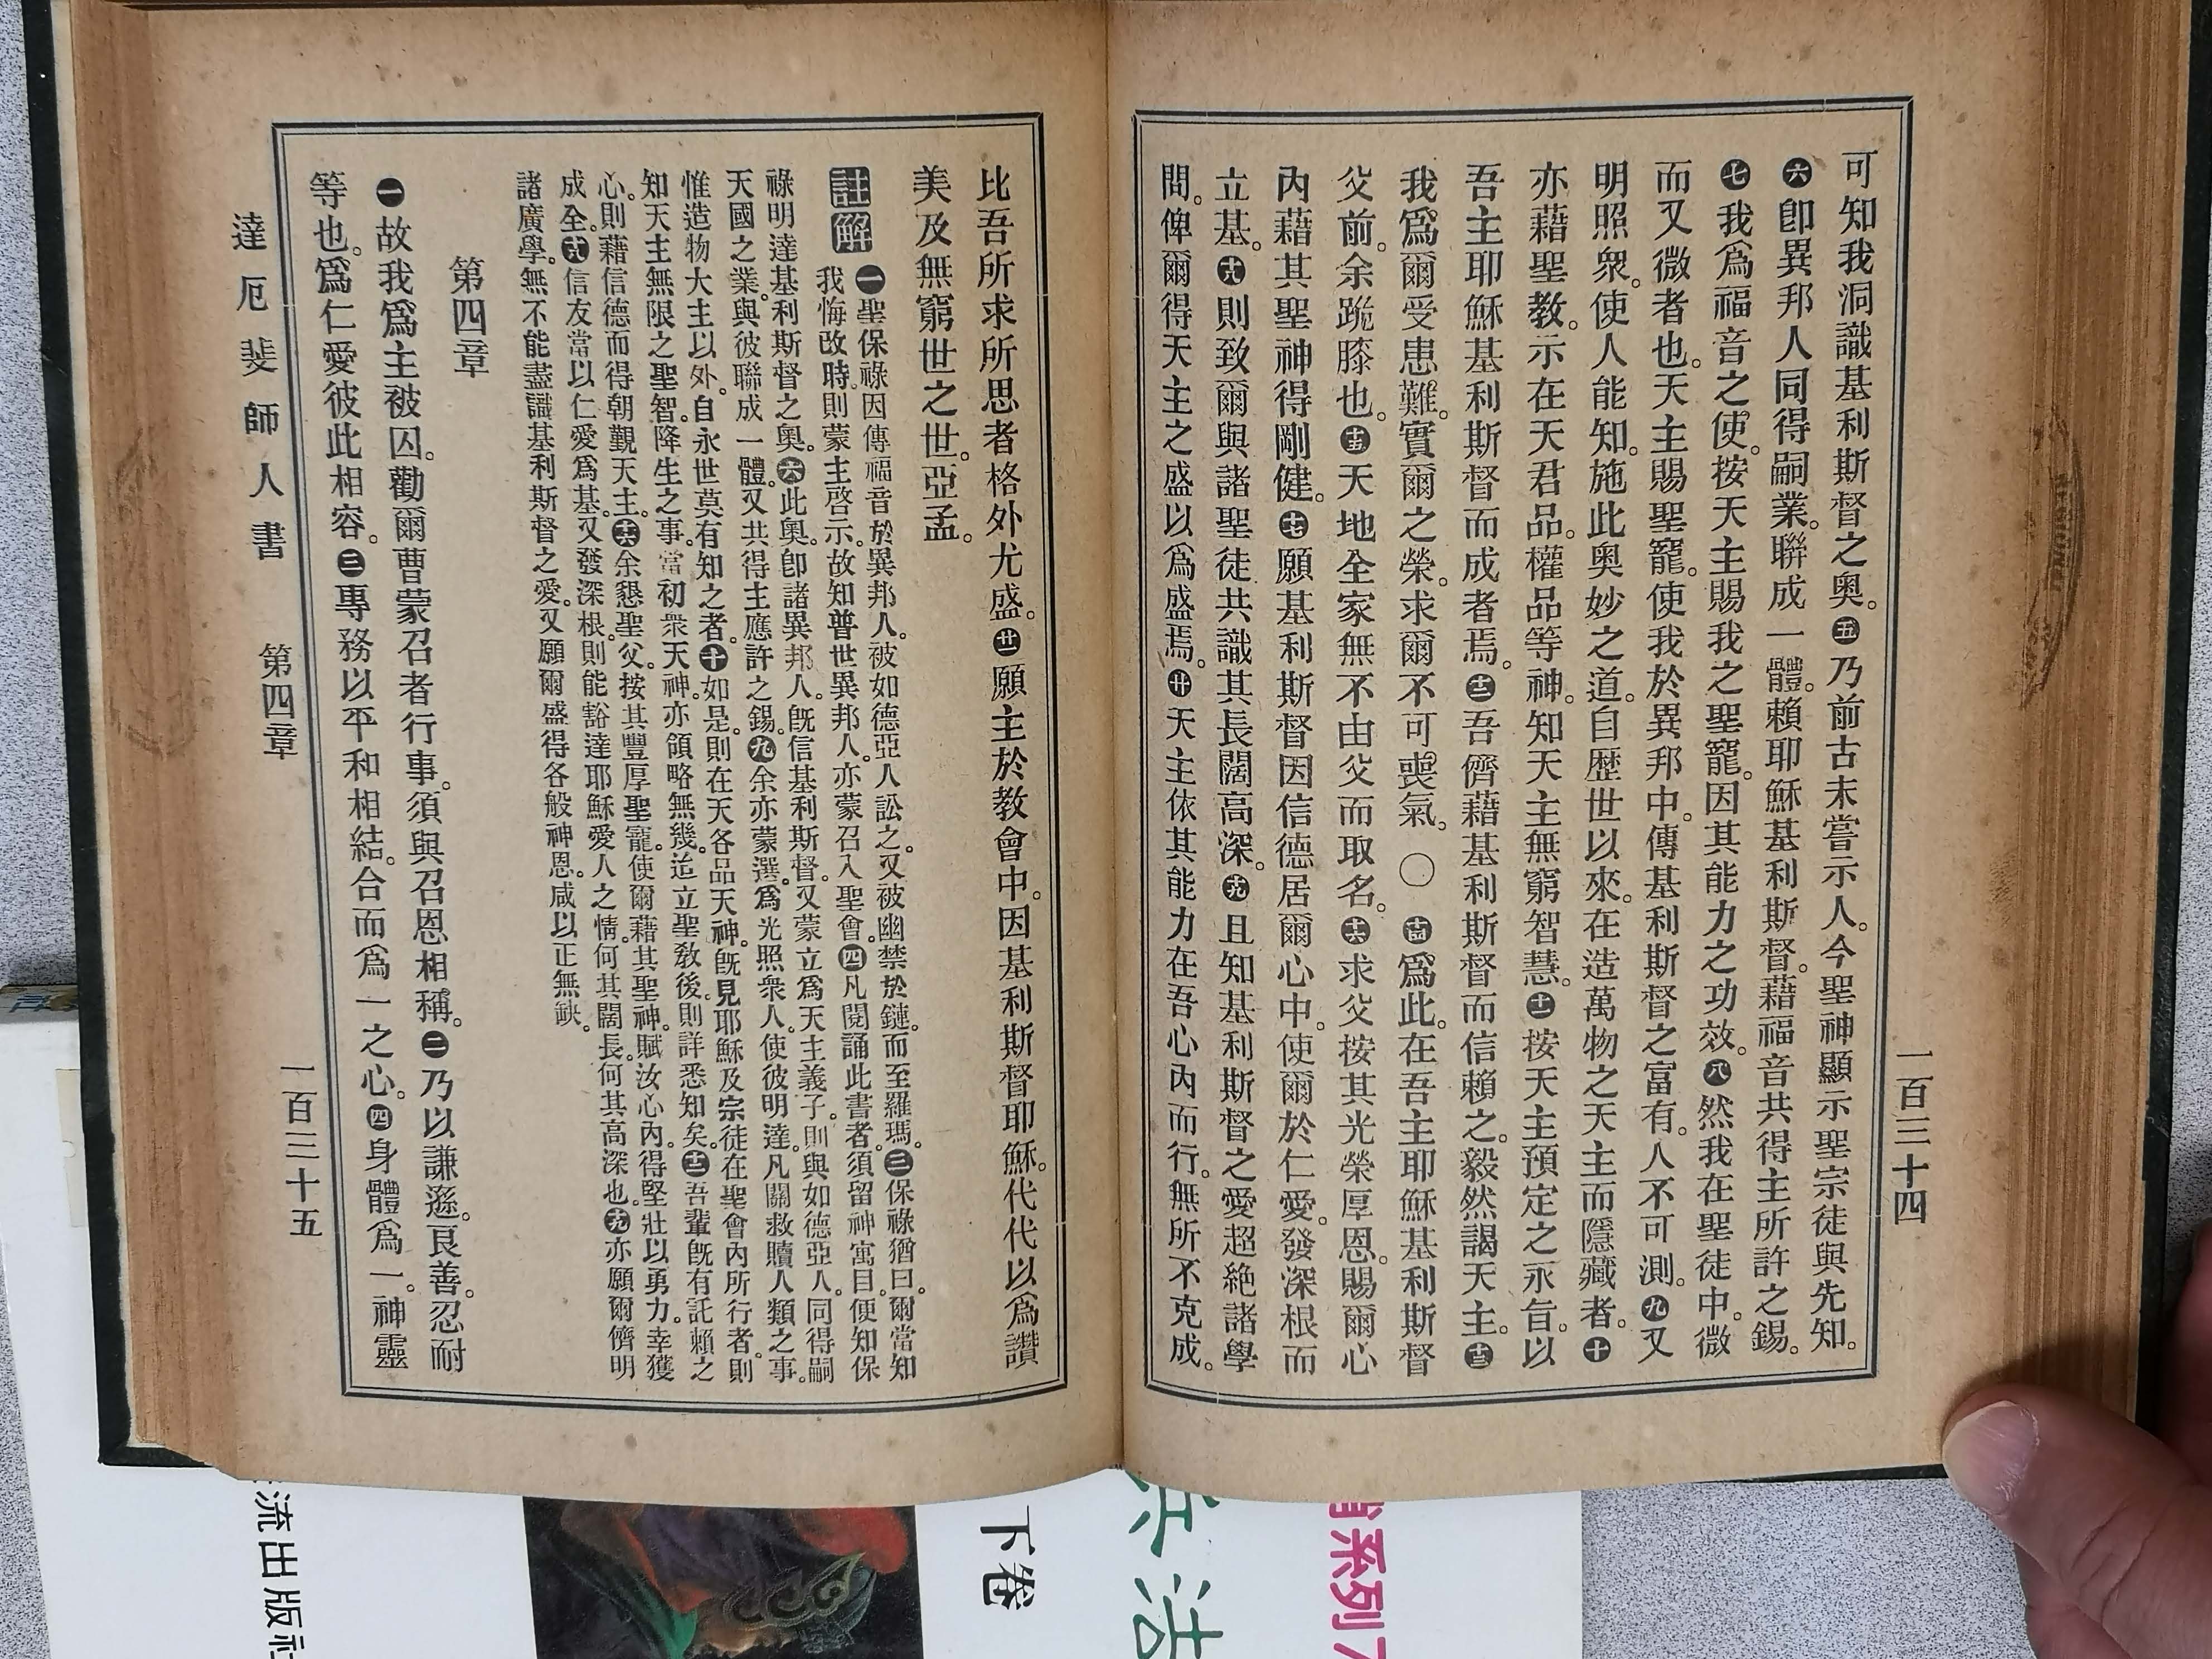 一百三十四
可知我洞識基利斯督之奥。五乃前古未嘗示人。今聖神顯示聖宗徒與先知。
六卽異邦人同得嗣業。聯成一體。賴耶穌基利斯督。藉福音共得主所許之錫。
七我爲福音之使。按天主賜我之聖寵。因其能力之功效。八然我在聖徒中。微
而又微者也。天主賜聖寵。使我於異邦中。傳基利斯督之富有。人不可測。九又
明照衆。使人能知。施此奥妙之道。自歷世以來。在造萬物之天主而隱藏者。十
亦藉聖教。示在天君品。權品等神。知天主無窮智慧。十一按天主預定之永旨。以
吾主耶穌基利斯督而成者焉。十二吾儕藉基利斯督而信賴之。毅然謁天主。十三
我爲爾受患難。實爾之榮。求爾不可喪氣。〇十四爲此。在吾主耶穌基利斯督
父前。余跪膝也。十五天地全家無不由父而取名。十六求父按其光榮厚恩。賜爾心
內藉其聖神得剛健。十七願基利斯督因信德居爾心中。使爾於仁愛。發深根而
立基。十八則致爾與諸聖徒共識其長闊高深。十九且知基利斯督之愛超絶諸學
問。俾爾得天主之盛以爲盛焉。廿天主依其能力在吾心內而行。無所不克成。
比吾所求所思者格外尤盛。廿一願主於教會中。因基利斯督耶穌。代代以爲讚
美及無窮世之世。亞孟。
註解
一聖保祿因傳福音於異邦人。被如德亞人訟之。又被幽禁於鏈。而至羅瑪。三保祿猶曰。爾當知
我悔改時。則蒙主啓示。故知普世異邦人。亦蒙召入聖會。四凡閱誦此書者。須留神寓目。便知保
祿明達基利斯督之奥。六此奥。卽諸異邦人。旣信基利斯督。又蒙立爲天主義子。則與如德亞人。同得嗣
天國之業。與彼聯成一體。又共得主應許之錫。九余亦蒙選。爲光照衆人。使彼明達。凡關救贖人類之事。
惟造物大主以外。自永世莫有知之者。十如是。則在天各品天神。旣見耶穌及宗徒在聖會內所行者。則
知天主無限之聖智。降生之事。當初衆天神。亦領略無幾。迄立聖敎後。則詳悉知矣。十二吾輩旣有託賴之
心。則藉信德而得朝覲天主。十六余懇聖父。按其豐厚聖寵。使爾藉其聖神。賦汝心內。得堅壯以勇力。幸獲
成全。十八信友當以仁愛爲基。又發深根。則能豁達耶穌愛人之情。何其闊長。何其高深也。十九亦願爾儕明
諸廣學。無不能盡識基利斯督之愛。又願爾盛得各般神恩。咸以正無缺。
第四章
一故我爲主被囚。勸爾曹蒙召者行事。須與召恩相稱。二乃以謙遜。良善。忍耐
等也。爲仁愛彼此相容。三專務以平和相結。合而爲一之心。四身體爲一。神靈
達厄斐師人書 第四章 一百三十五
流出版社
下卷
兵法
系列7